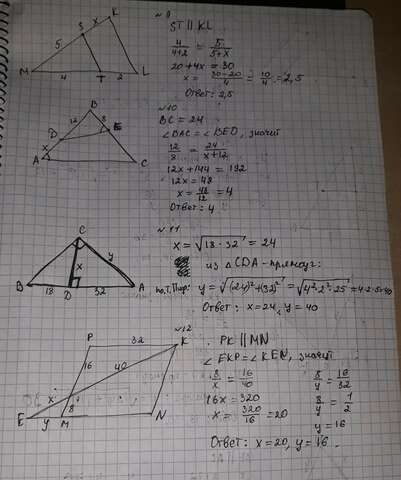 №9
ST || KL
4/(4+2) = 5/(5+x)
20+4x=30
x = (30-20)/4 = 10/4 = 2,5
Ответ: 2,5
K
x
S
5
M
4
T
2
L
№10
BC = 24
∠DAC = ∠BED, значит
12/8 = 24/(x+12)
12x+144 = 192
12x = 48
x = 48/12 = 4
Ответ: 4
B
12
8
D
E
x
A
C
№11
x = √(18·32) = 24
из △CDA - прямоуг:
по.т.Пир: y = √((24)²+(32)²) = √(4³·2²·25) = 4·2·5=40
Ответ: x=24, y = 40
C
x
y
B
18
D
32
A
№12
PK || MN
∠EKP = ∠KEN, значит
8/x = 16/40
16x = 320
x = 320/16 = 20
8/y = 16/32
8/y = 1/2
y = 16
Ответ: x=20, y = 16
P
32
K
16
40
x
8
E
y
M
N